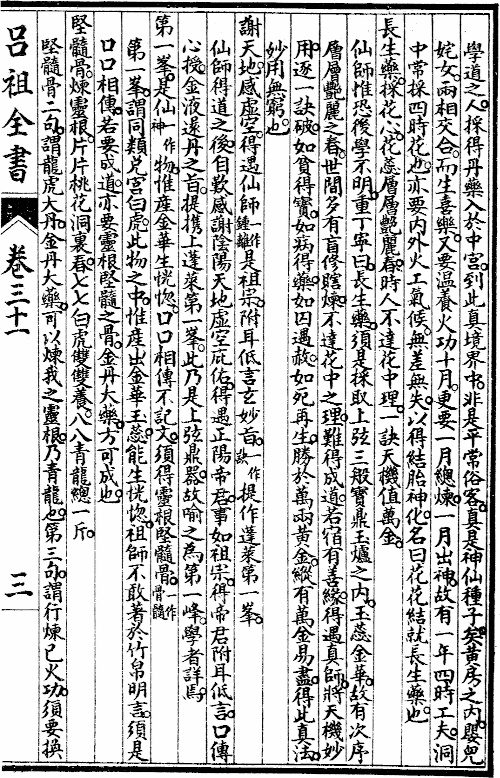 學道之人採得丹藥入於中宮到此真境界中非是平常俗客真是神仙種子矣黃房之內嬰兒
姹女兩相交合而生喜藥又要溫養火功十月更要一月總煉一月出神故有一年四時工夫洞
中常採四時花也亦要內外火工氣候無差無失以得結胎神化名曰花花結就長生藥也
長生藥採花心花蕊層層艷麗春時人不達花中理一訣天機值萬金
仙師惟恐後學不明重丁寧曰長生藥須是採取上弦三般寶鼎玉爐之內玉蕊金華故有次序
層層艷麗之春世間多有盲修瞎煉不達花中之理難得成道若宿有善緣得遇真師將天機妙
用逐一訣破如貧得寶如病得藥如囚遇赦如死再生勝於萬兩黃金縱有萬金易盡得此真法
妙用無窮也
謝天地感虛空得遇仙師一作鍾離是祖宗附耳低言玄妙旨一作訣提作蓬萊第一峯
仙師得道之後自歎感謝陰陽天地虛空庇佑得遇正陽帝君事如祖宗得帝君附耳低言口傳
心授金液還丹之旨提攜上蓬萊第一峯此乃是上弦鼎器故喻之為第一峰學者詳焉
第一峯是仙一作神物惟產金華生恍惚口口相傳不記文須得靈根堅髓骨一作骨髓
第一峯謂同類兌宮白虎此物之中惟產出金華玉蕊能生恍惚祖師不敢著於竹帛明言須是
口口相傳若要成道亦要靈根堅髓之骨金丹大藥方可成也
堅髓骨煉靈根片片桃花洞裏春七七白虎雙雙養八八青龍總一斤
堅髓骨二句謂龍虎大丹金丹大藥可以煉我之靈根乃青龍也第三句謂行煉已火功須要換
呂祖全書
卷三十一
三